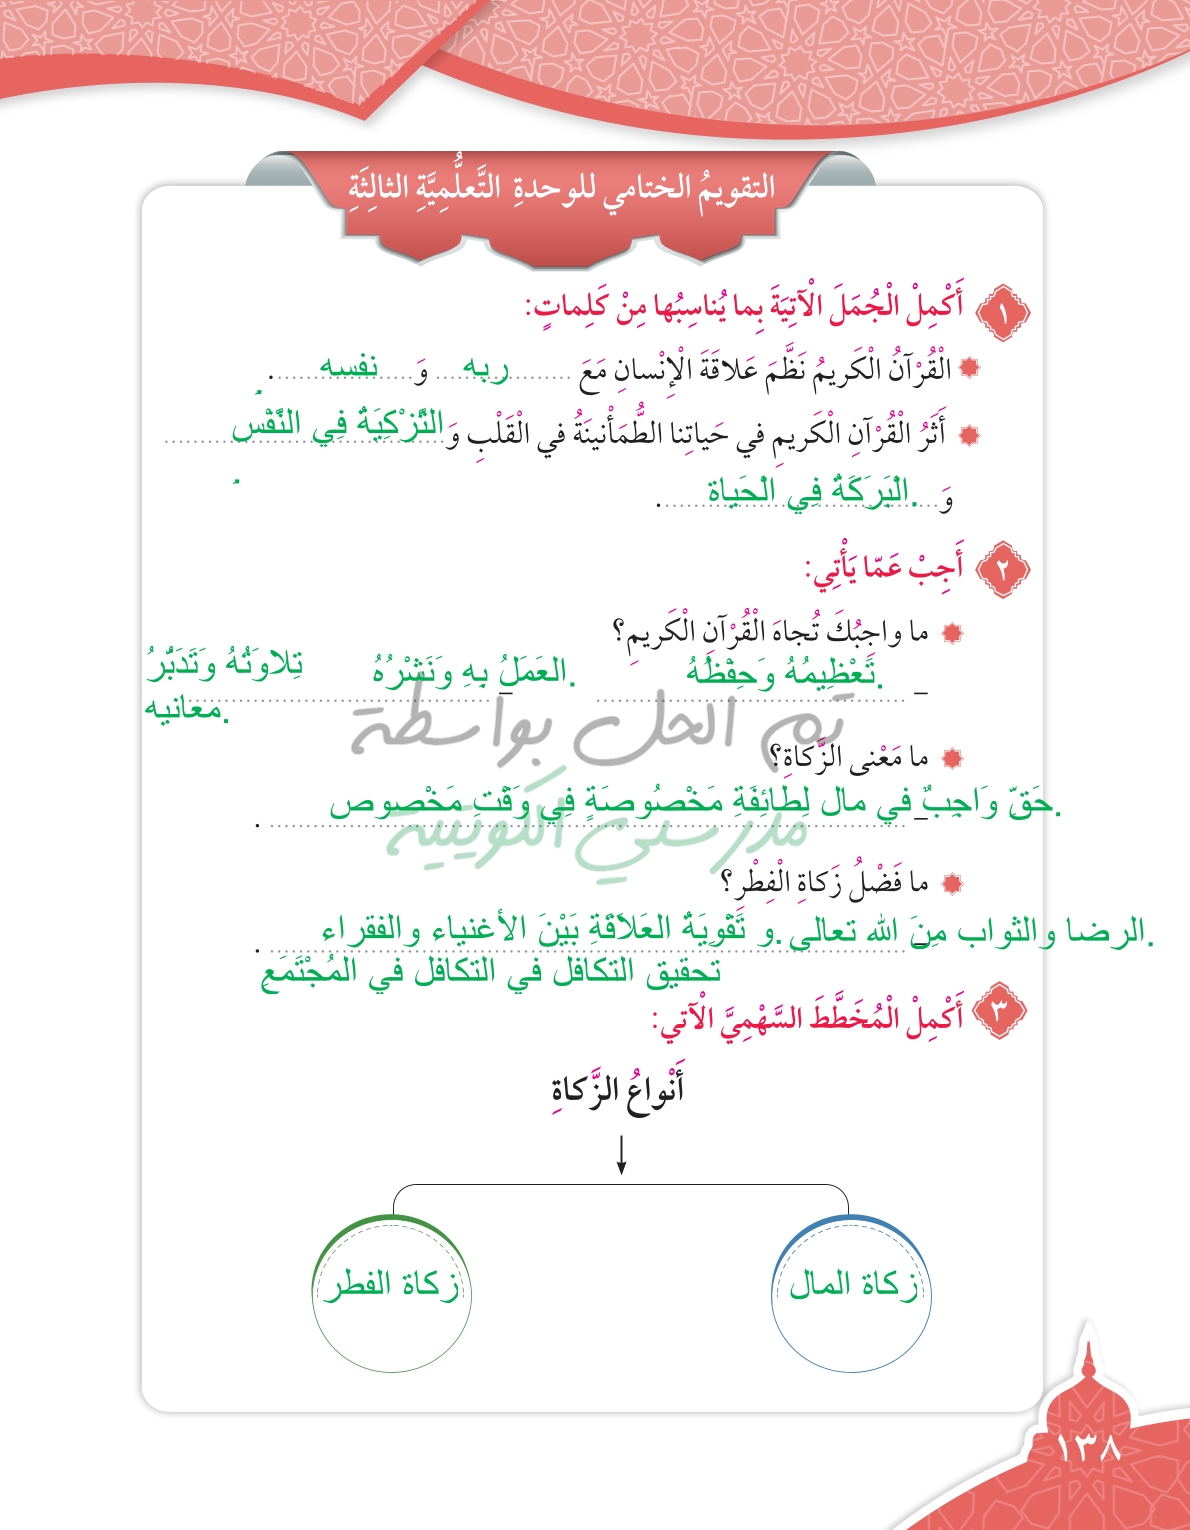 التقويمُ الختامي للوحدةِ التَّعلُّمِيَّةِ الثالِثَةِ
١ أَكْمِلْ الْجُمَلَ الْآتِيَةَ بِما يُناسِبُها مِنْ كَلِماتٍ:
الْقُرْآنُ الْكَريمُ نَظَّمَ عَلاقَةَ الْإِنْسانِ مَعَ ........ ربه ........ وَ ........ نفسه ........ .
أَثَرُ الْقُرْآنِ الْكَريمِ في حَياتِنا الطُّمَأْنينَةُ في الْقَلْبِ وَ التَّزْكِيَةُ فِي النَّفْسِ
وَ .الْبَرَكَةُ فِي الْحَيَاة ........ .
٢ أَجِبْ عَمّا يَأْتِي:
ما واجِبُكَ تُجاهَ الْقُرْآنِ الْكَريمِ؟
_ تَعْظِيمُهُ وَحِفْظُهُ. _ العَمَلُ بِهِ وَنَشْرُهُ. تِلاوَتُهُ وَتَدَبُّرُ
معانيه.
تم الحل بواسطة
ما مَعْنى الزَّكاةِ؟
_ حَقّ وَاجِبٌ في مال لِطَائِفَةِ مَخْصُوصَةٍ فِي وَقْتِ مَخْصوص. .
مدرستي الكويتية
ما فَضْلُ زَكاةِ الْفِطْرِ؟
_ الرضا والثواب مِنَ الله تعالى.و تَقْوِيَةُ العَلاقَةِ بَيْنَ الأغنياء والفقراء. .
تحقيق التكافل في التكافل في المُجْتَمَعِ
٣ أَكْمِلْ الْمُخَطَّطَ السَّهْمِيَّ الْآتي:
أَنْواعُ الزَّكاةِ
زكاة المال
زكاة الفطر
١٣٨